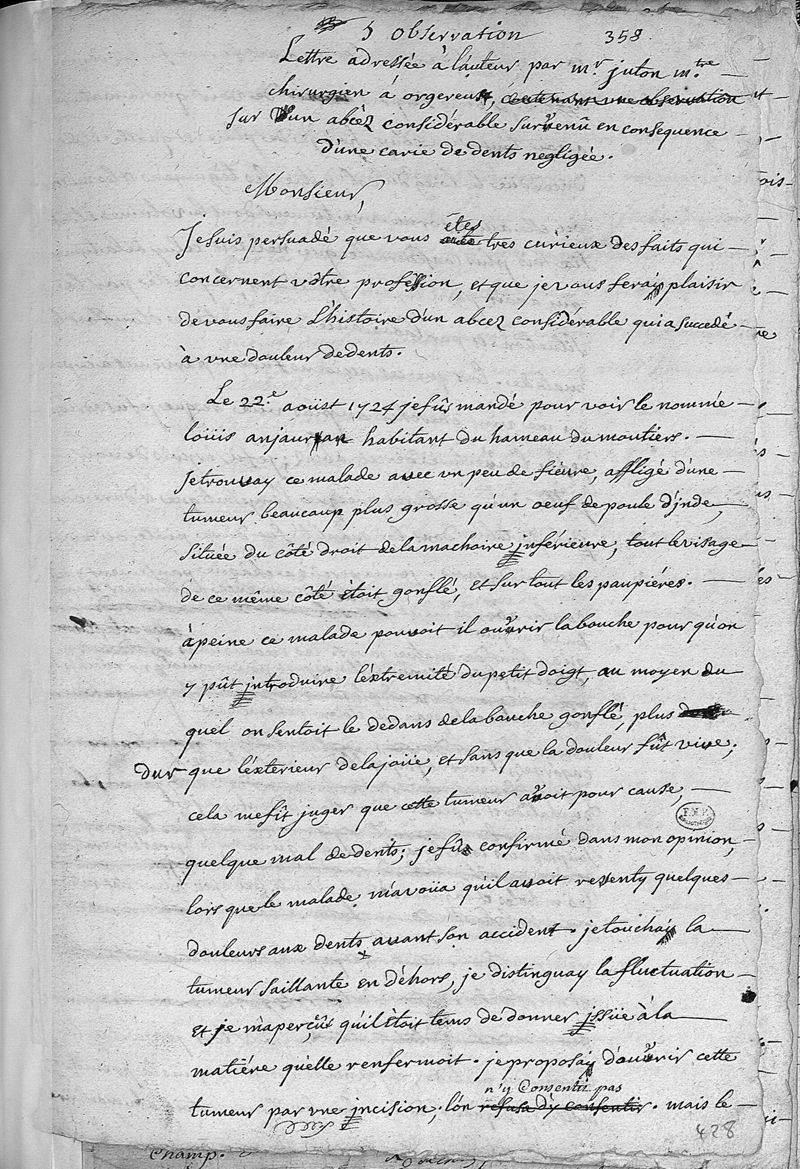 5 Observation 358.
Lettre adressée à l'auteur par mr. juton mtre
chirurgien à orgereus, contenant une observation
sur d'un abcèz considérable survenû en consequence
D'une carie de dents negligée.
Monsieur,
Je suis persuadé que vous étes tres curieux des faits qui
concernent vôtre profession, et que je vous feray plaisir
de vous faire l'histoire d'un abcez considérable qui a succedé
à une douleur de dents.
Le 22.e aoüst 1724 je fûs mandé pour voir le nommée
loüis habitant du hameau du moutiers.
Je trouvay ce malade avec un peu de fiévre, affligé d'une
tumeur beaucoup plus grosse qu'un oeuf de poule d'jnde,
située du côté droit de la machoire jnférieure, tout le visage
de ce même côté étoit gonflé, et sur tout les paupiéres.
à peine ce malade pouvoit il ouvrir la bouche pour qu'on
y pût jntroduire l'extremité du petit doigt, au moyen du
quel on sentoit le dedans de la bouche gonflé, plus
dur que l'éxterieur de la joüe, et sans que la douleur fût vive;
cela me fit juger que cette tumeur avoit pour cause
quelque mal de dents; je fûs confirmé dans mon opinion,
lors que le malade m'avoüa qu'il avoit ressenty quelques
douleurs aux dents avant son accident. je touchay la
tumeur saillante en déhors, je distinguay la fluctuation
et je m'aperçûs qu'il étoit tems de donner jssüe à la
matiére qu'elle renfermoit. je proposay d'ouvrir cette
n'y Consentit pas
tumeur par une jncision; l'on refusa d'y consentir. mais le
428
Champ.